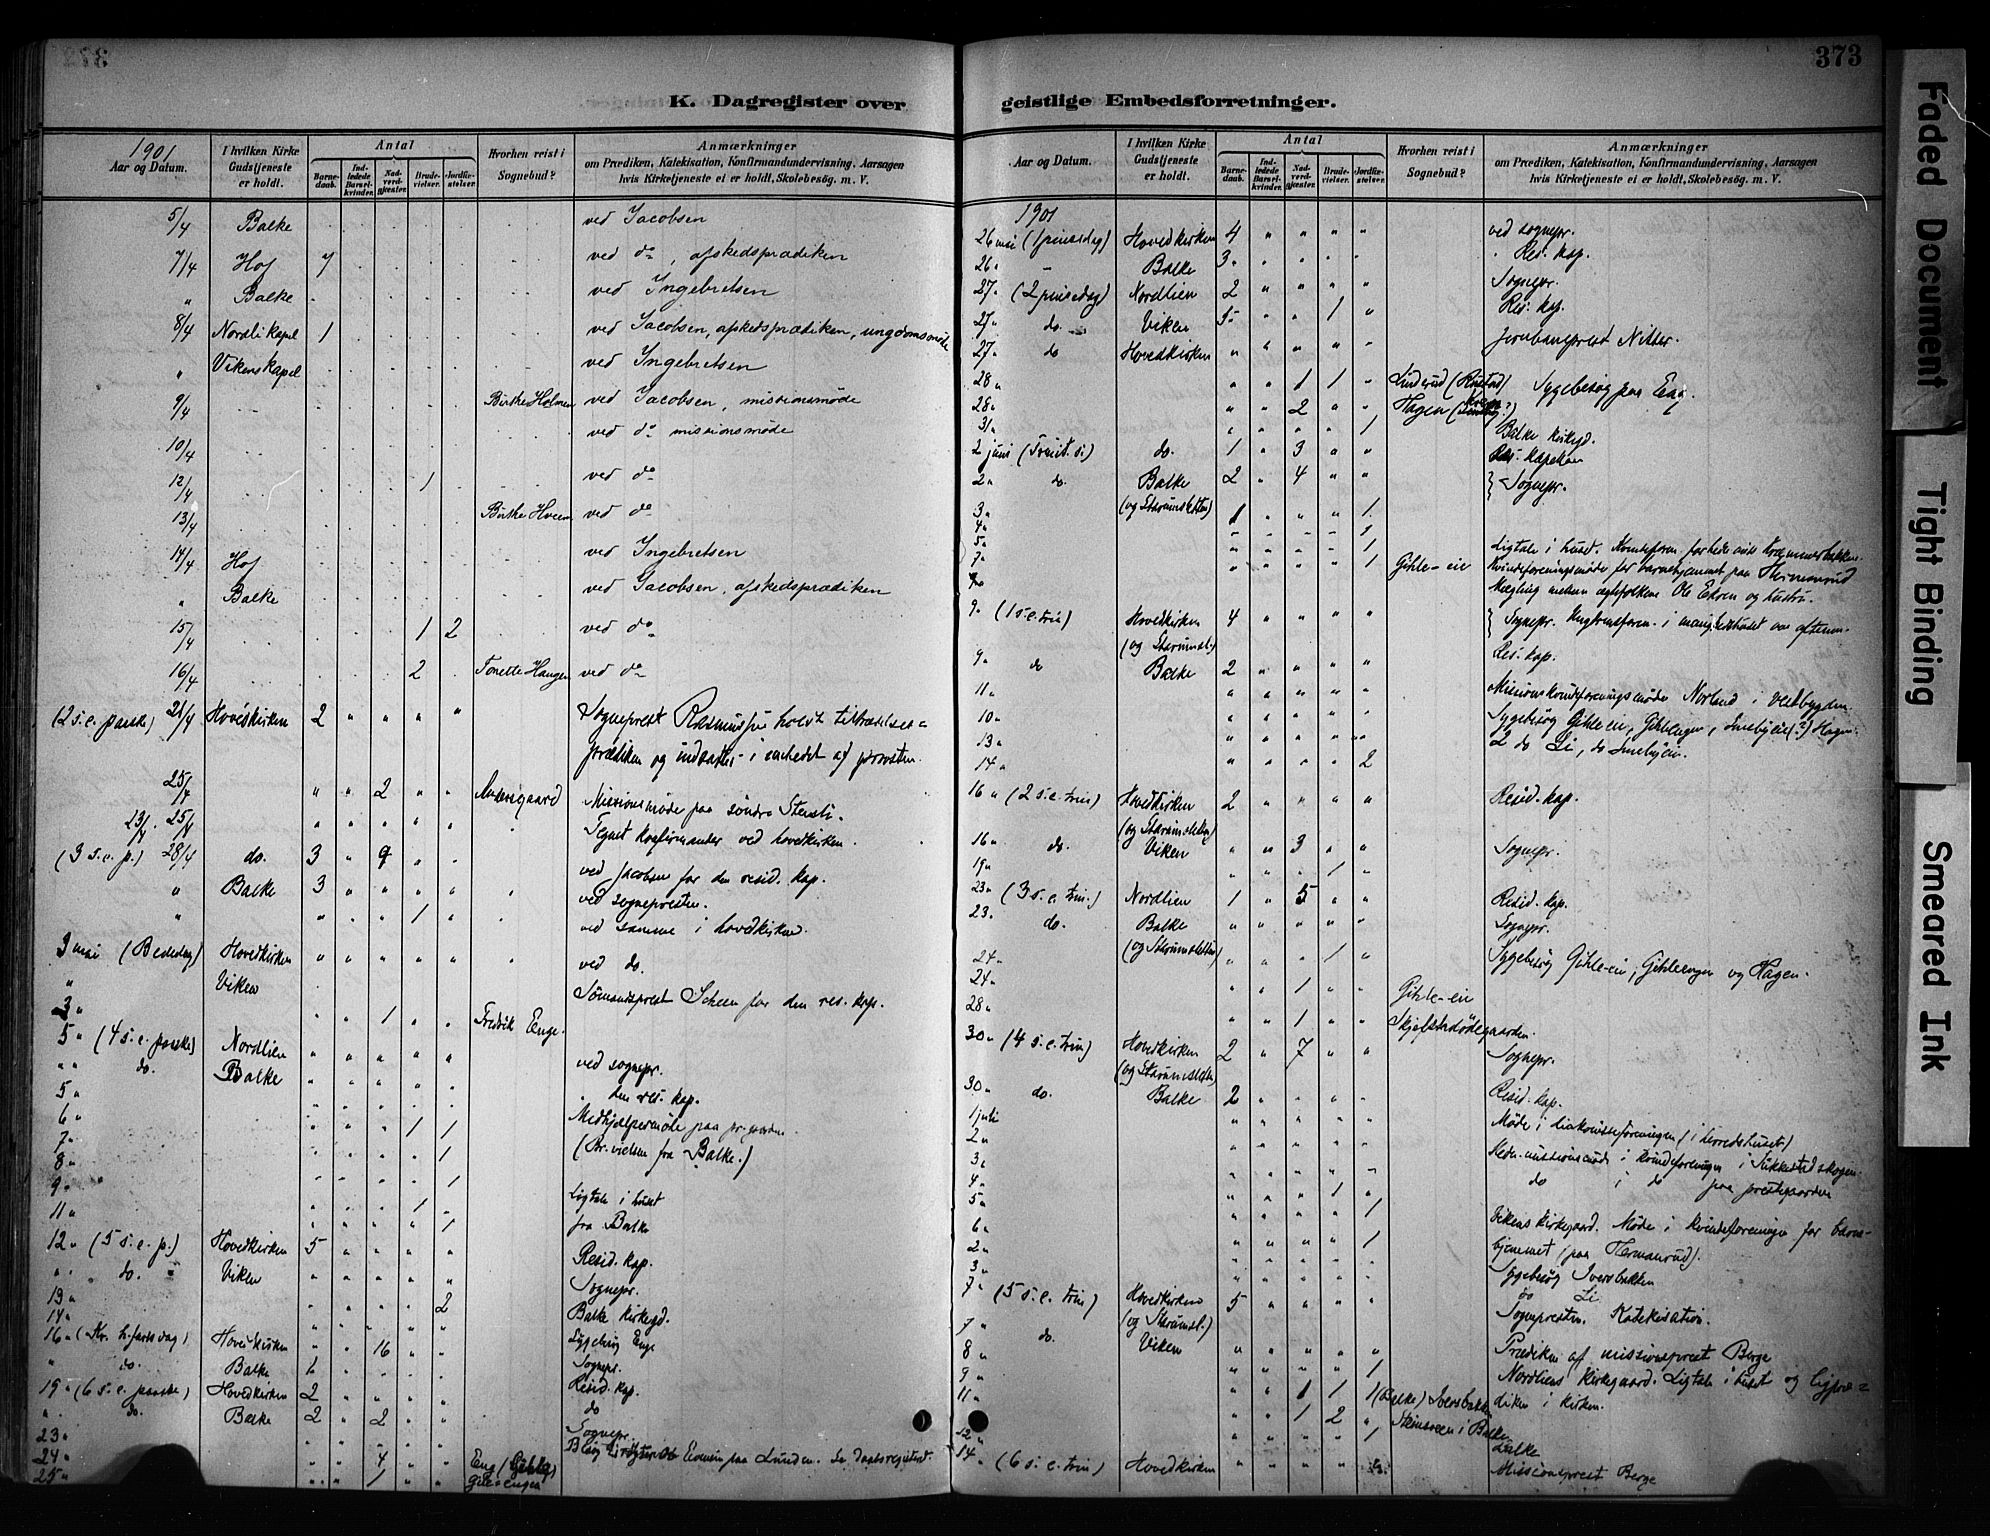 373
K. Dagregister over geistlige Embedsforretninger.
1901
Aar og Datum.
I hvilken Kirke Gudstjeneste er holdt.
Antal
Barnedaab.
Indledede Barselkvinder.
Nadverdgjester.
Brudevielser.
Jordfæstelser.
Hvorhen reist i Sognebud?
Anmærkninger
om Prædiken, Katekisation, Konfirmandundervisning, Aarsagen
hvis Kirketjeneste ei er holdt, Skolebesøg. m. V.
5/4 Balke ved Jacobsen
7/4 Hof 7 ved do, afskedsprædiken
" Balke ved Ingebretsen
8/4 Nordli kapel 1 ved Jacobsen, afskedsprædiken, ungdomsmøde
" Vikens kapel ved Ingebretsen
9/4 Birthe Holmen ved Jacobsen, missionsmøde
10/4 ved do missionsmøde
12/4 1 ved do
13/4 Birthe Hveem ved do
14/4 Hof ved Ingebretsen
" Balke ved Jacobsen, afskedsprædiken
15/4 1 2 ved do
16/4 2 Tonette Haugen ved do
(2 s. e. paaske) 21/4 Hovedkirken 2 " " " " Sogneprest Rasmussen holdt tiltrædelses=
prædiken og indsattes i embedet af provsten.
25/4 " " 2 " " Missionsmøde paa søndre Stensli.
23/4. 25/4 " " " " " Tegnet konfirmander ved hovedkirken.
(3 s. e. p.) 28/4 do. 3 " 9 " " ved Jacobsen for den resid. kap.
" Balke 3 " " " " ved sognepresten.
" " " " 1 " ved samme i hovedkirken.
3 mai (Bededag) Hovedkirken " " " " " ved do.
" Viken Sømandsprest Scheen for den res. kap.
3 " " " 1 " " Fredrik Enge.
5 " (4 s. e. paaske) Nordlien " " " " " ved sognepr.
" " do. Balke " " " " " " den res. kap.
5 "
6 " " " " 1 1 Medhjælpermøde paa pr.gaarden.
7 " " " " " 1 (Br. vielsen fra Balke.)
8 "
9 " " " " " 1 Ligtale i huset
11 " " " " 1 " fra Balke
12 " (5 s. e. p.) Hovedkirken 5 " " " " Resid. kap.
" " do. " Viken " " " " " Sognepr.
13 " " " " " 2 Balke kirkegd.
14 "
16 " (Kr. h.fartsdag) Hovedkirken " " 16 " " Sognepr.
" do. Balke Resid. kap.
19 " (6 s. e. paaske) Hovedkirken 2 do
" " do. Balke 2 " 2 " " Sognepr.
23 "
24 " " " 4 " " Eng (Gihle)
25 " " " 1 " "
Aar og Datum.
I hvilken Kirke Gudstjeneste er holdt.
Antal
Barnedaab.
Indledede Barselkvinder.
Nadverdgjester.
Brudevielser.
Jordfæstelser.
Hvorhen reist i Sognebud?
Anmærkninger
om Prædiken, Katekisation, Konfirmandundervisning, Aarsagen
hvis Kirketjeneste ei er holdt, Skolebesøg. m. V.
1901
26 mai (1 pinsedag) Hovedkirken 4 " " " " ved sognepr.
26 " - Balke 3 " " " " " Res. kap.
27 " (2 pinsedag) Nordlien 2 " " " " Sognepr.
27 " do. - Viken 5 " " 1 " Res. kap.
27 " do Hovedkirken " " " " " Jernbaneprest Nitter.
28 " " " 1 1 " Sygebesøg paa Eng
28 " " " 2 " " Hagen
31 " " " " " 1 Balke kirkegd.
2 juni (Trinit. s.) do. 1 " 3 " " Res. kapellan
2 " do. Balke 2 " 4 " " } Sognepr.
3 " 1 " " " 1
4 " " " " " 1
5 " " " " " 1
7 " " " " " 1 Gihle-eie Kvindeforeningsmøde for barnehjemmet paa
Mægling mellem ægtefolkene Ole Ekren og hustru.
9 " (1 s. e. trin) Hovedkirken 4 " " " " } Sognepr.
9 " do Balke 2 " " " " Res. kap.
11 " Missionskvindeforeningsmøde Norland i Vestbygden.
10 " Sygebesøg Gihle-eie, Gihleengen, Smebyeie(?) Hagen
13 " 2 do Li, do Smebyeie.
14 " " " " " 2
16 " (2 s. e. trin) Hovedkirken 2 " " " " Resid. kap.
16 " do. Viken " " 3 " " Sognepr.
19 " " " " 1 "
23 " (3 s. e. trin.) Nordlien 1 " 5 " " Resid. kap.
23 " do. Balke " " " " " Sognepr.
24 " " " " 1 " Sygebesøg Gihle-eie, Gihleengen og Hagen.
24 " " " 1 " " Gihle-eie
28 " " " 1 " "
30 " (4 s. e. trin) Hovedkirken 2 " 7 " " Sognepr.
30 " do. Balke 2 " " " " Resid. kap.
1 juli Møde i diakonisseforeningen (i herredshuset)
2 " Hedn.missionsmøde i kvindeforeningen i Sukkestadskogen.
3 " do i do paa prestegaarden
4 " " " " 1 "
5 " " " " " 1 Vikens kirkegaard. Møde i kvindeforeningen for barne-
6 " " " " " 1 hjemmet (paa Hermanrud).
2 " Sygebesøg Iversbakken
3 " do Li
7 " (5 s. e. trin) Hovedkirken 5 " " " " Sognepresten. Katekisation.
7 " do. Viken " " " " " Prædiken af missionsprest Berge
8 " " " " " 1 Nordliens kirkegaard. Ligtale i huset og ligpræ=
9 " diken i kirken.
11 " " " 1 1 1 (Balke) Iversbakken
12 " Balke
14 " (6 s. e. trin) Hovedkirken Missionsprest Berge
Faded Document
Tight Binding
Smeared Ink